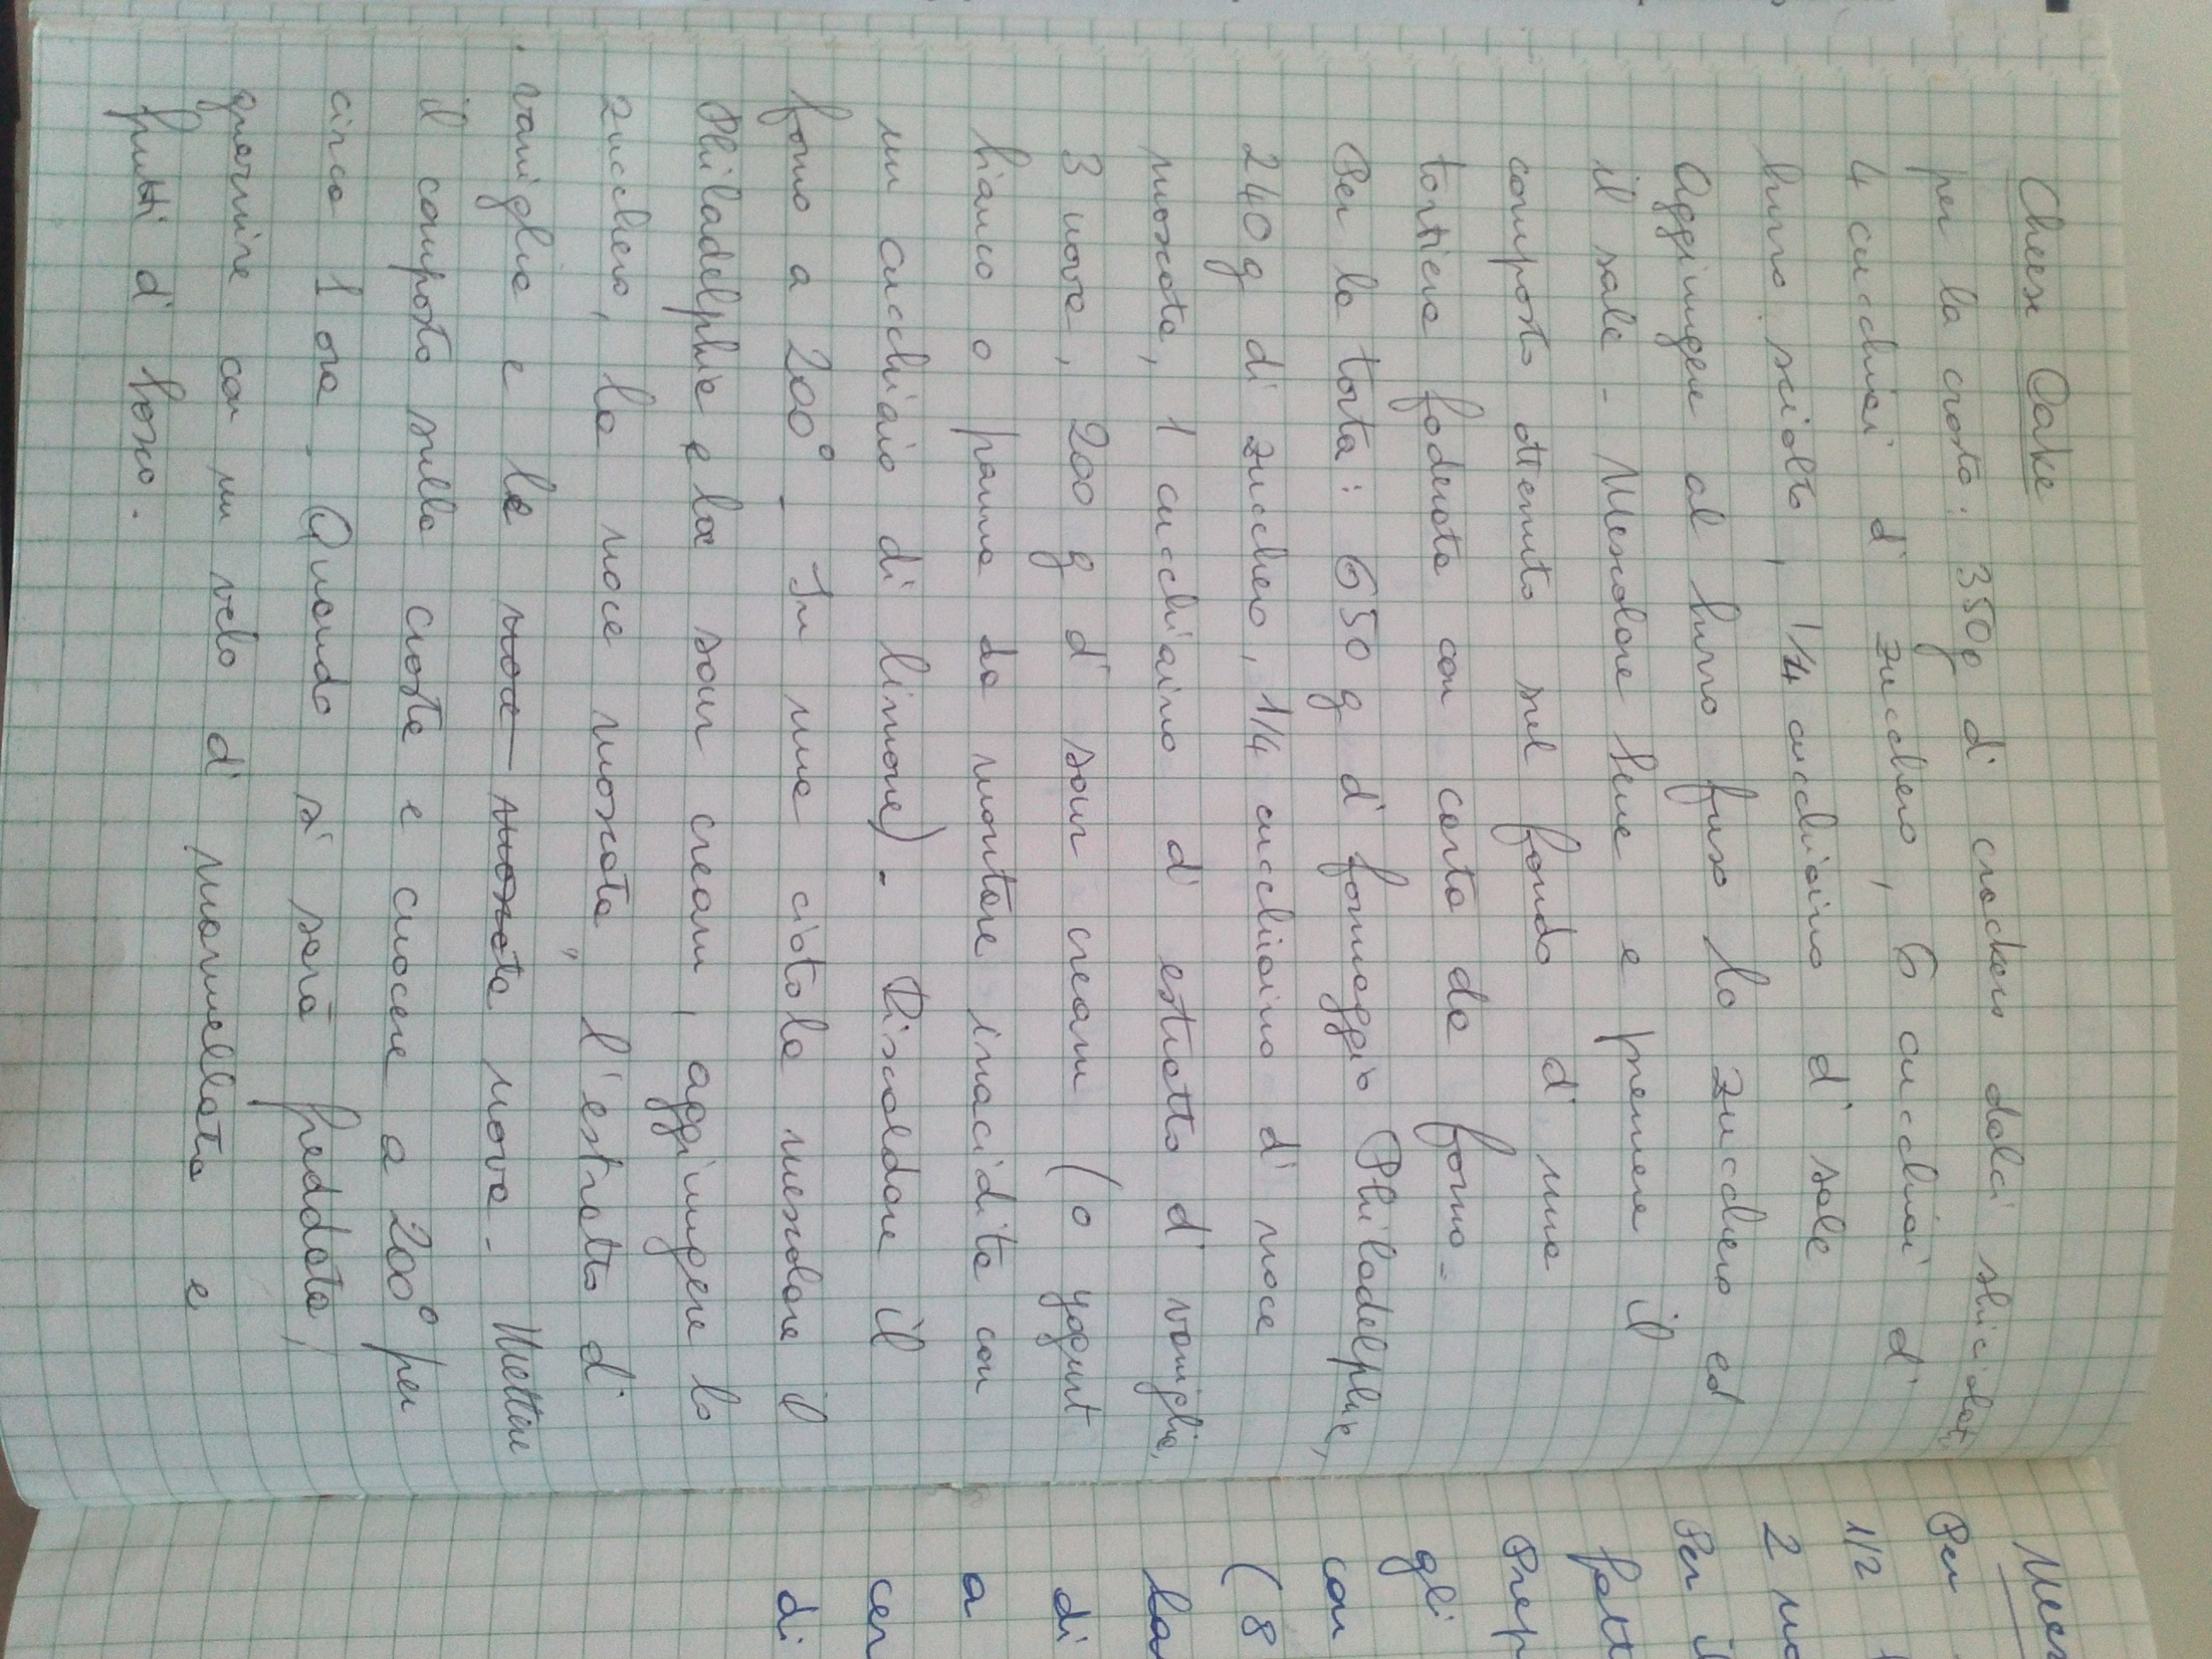 Cheese Cake
per la crosta: 350g di crackers dolci sbriciolati,
4 cucchiai di zucchero, 6 cucchiai di
burro sciolto, 1/4 cucchiaino di sale
Aggiungere al burro fuso lo zucchero ed
il sale - Mescolare bene e premere il
composto ottenuto sul fondo di una
tortiera foderata con carta da forno -
Per la torta: 650 g di formaggio Philadelphia,
240g di zucchero, 1/4 cucchiaino di noce
moscata, 1 cucchiaino di estratto di vaniglia,
3 uova, 200 g di sour cream (o yogurt
bianco o panna da montare inacidita con
un cucchiaio di limone) - Riscaldare il
forno a 200° - In una ciotola mescolare il
Philadelphia e la sour cream, aggiungere lo
zucchero, la noce moscata, l'estratto di
vaniglia e le noce moscata uova - Mettere
il composto sulla crosta e cuocere a 200° per
circa 1 ora. Quando si sarà freddata,
guarnire con un velo di marmellata e
frutti di bosco.
Per
1/2
2
Per
Prep
gli
con
(8
di
a
cer
di